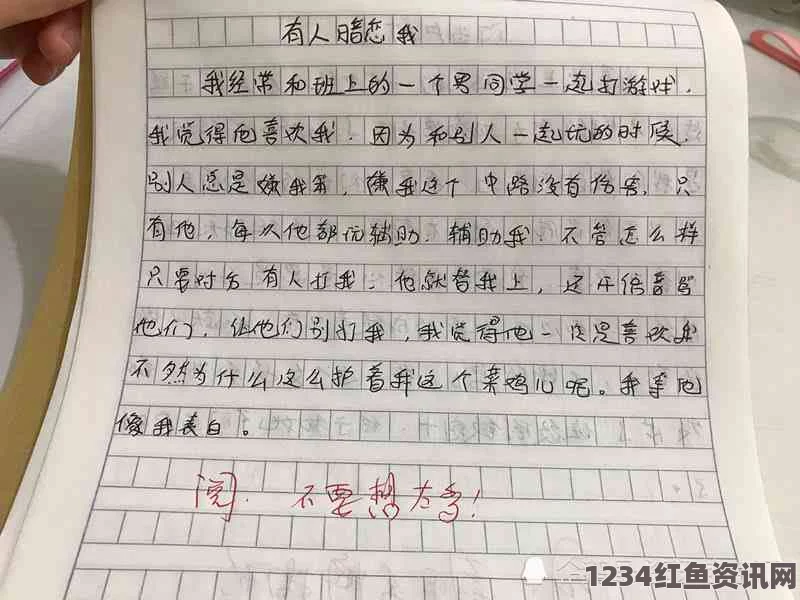 有人暗恋我
我经常和班上的一个男同学一起打游戏.
我觉得他喜欢我.因为和别人一起玩的时候.
别人总是嫌我菜,嫌我这个中路没有伤害,只
有他,每次他都玩辅助.辅助我.不管怎么样
只要对方有人打我.他就替我上,还开语音骂
他们,让他们别打我,我觉得他一定是喜欢我
不然为什么这么护着我这个菜鸡儿呢。我等他
像我表白。
阅.不要想太多!
1234红鱼资讯网